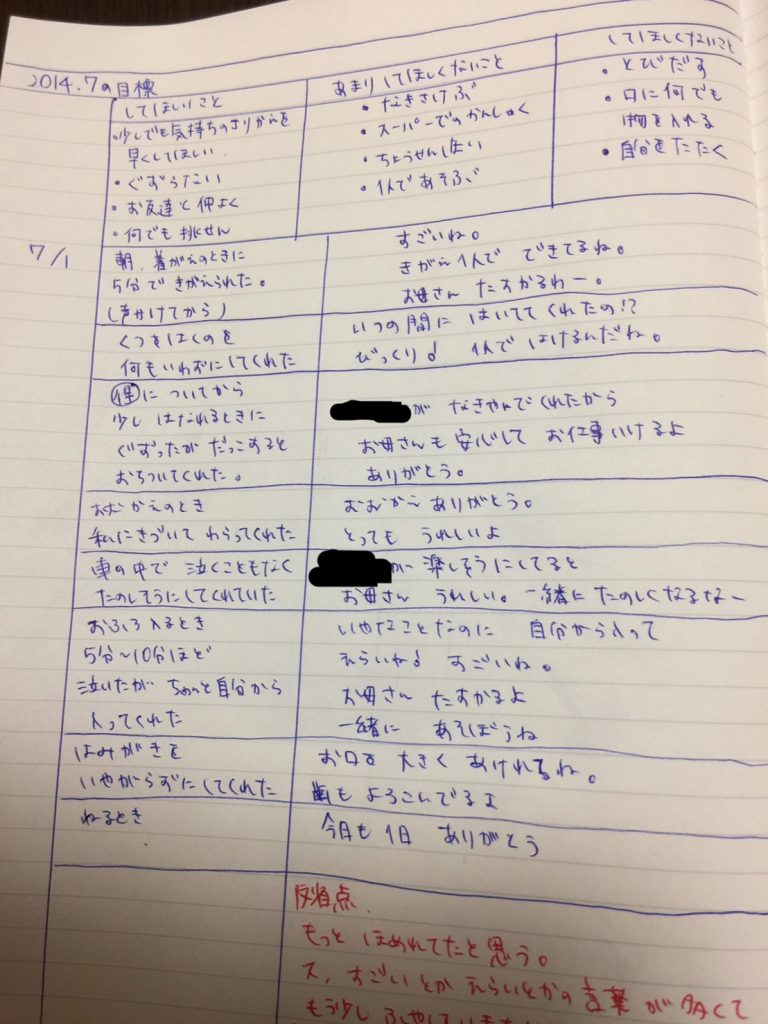 2014.7の目標
してほしいこと
・少しでも気持ちのきりかえを
早くしてほしい.
・ぐずらない
・お友達と仲よく
・何でも挑せん
あまりしてほしくないこと
・なきさけぶ
・スーパーでのかんしゃく
・ちょうせんしない
・1人であそぶ
してほしくないこと
・とびだす
・口に何でも
物を入れる
・自分をたたく
7/1
朝、着がえのときに
5分できがえられた。
(声かけてから)
すごいね。
きがえ1人で できてるね。
お母さん たすかるわー。
くつをはくのを
何もいわずにしてくれた
いつの間に はいててくれたの!?
びっくり! 1人で はけるんだね。
についてから
少し はなれるときに
ぐずったが だっこすると
おちついてくれた。
が なきやんでくれたから
お母さんも 安心して お仕事いけるよ
ありがとう。
おむかえのとき
私にきづいて わらってくれた
おむかえ ありがとう。
とっても うれしいよ
車の中で 泣くこともなく
たのしそうにしてくれていた
が 楽しそうにしてると
お母さん うれしい。一緒に たのしくなるなー
おふろ入るとき
5分〜10分ほど
泣いたが ちゃんと自分から
入ってくれた
いやなことなのに 自分から入って
えらいね! すごいね。
お母さん たすかるよ
一緒に あそぼうね
はみがきを
いやがらずにしてくれた
お口を 大きく あけれるね。
歯も よろこんでるよ
ねるとき
今日も1日 ありがとう
反省点.
もっと ほめれてたと思う。
又、すごいとか えらいとかの言葉が多くて
もう少し ふやして